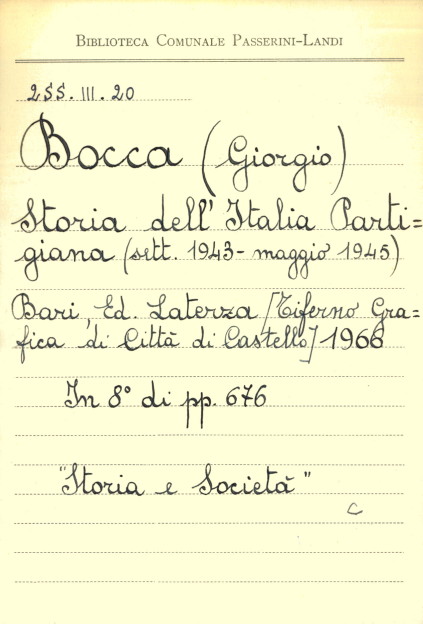 BIBLIOTECA COMUNALE PASSERINI-LANDI
255. III. 20
Bocca (Giorgio)
Storia dell'Italia Parti=
giana (sett. 1943 - maggio 1945)
Bari, Ed. Laterza [Tiferno Gra=
fica di Città di Castello] 1966
In 8° di pp. 676
"Storia e Società"
C